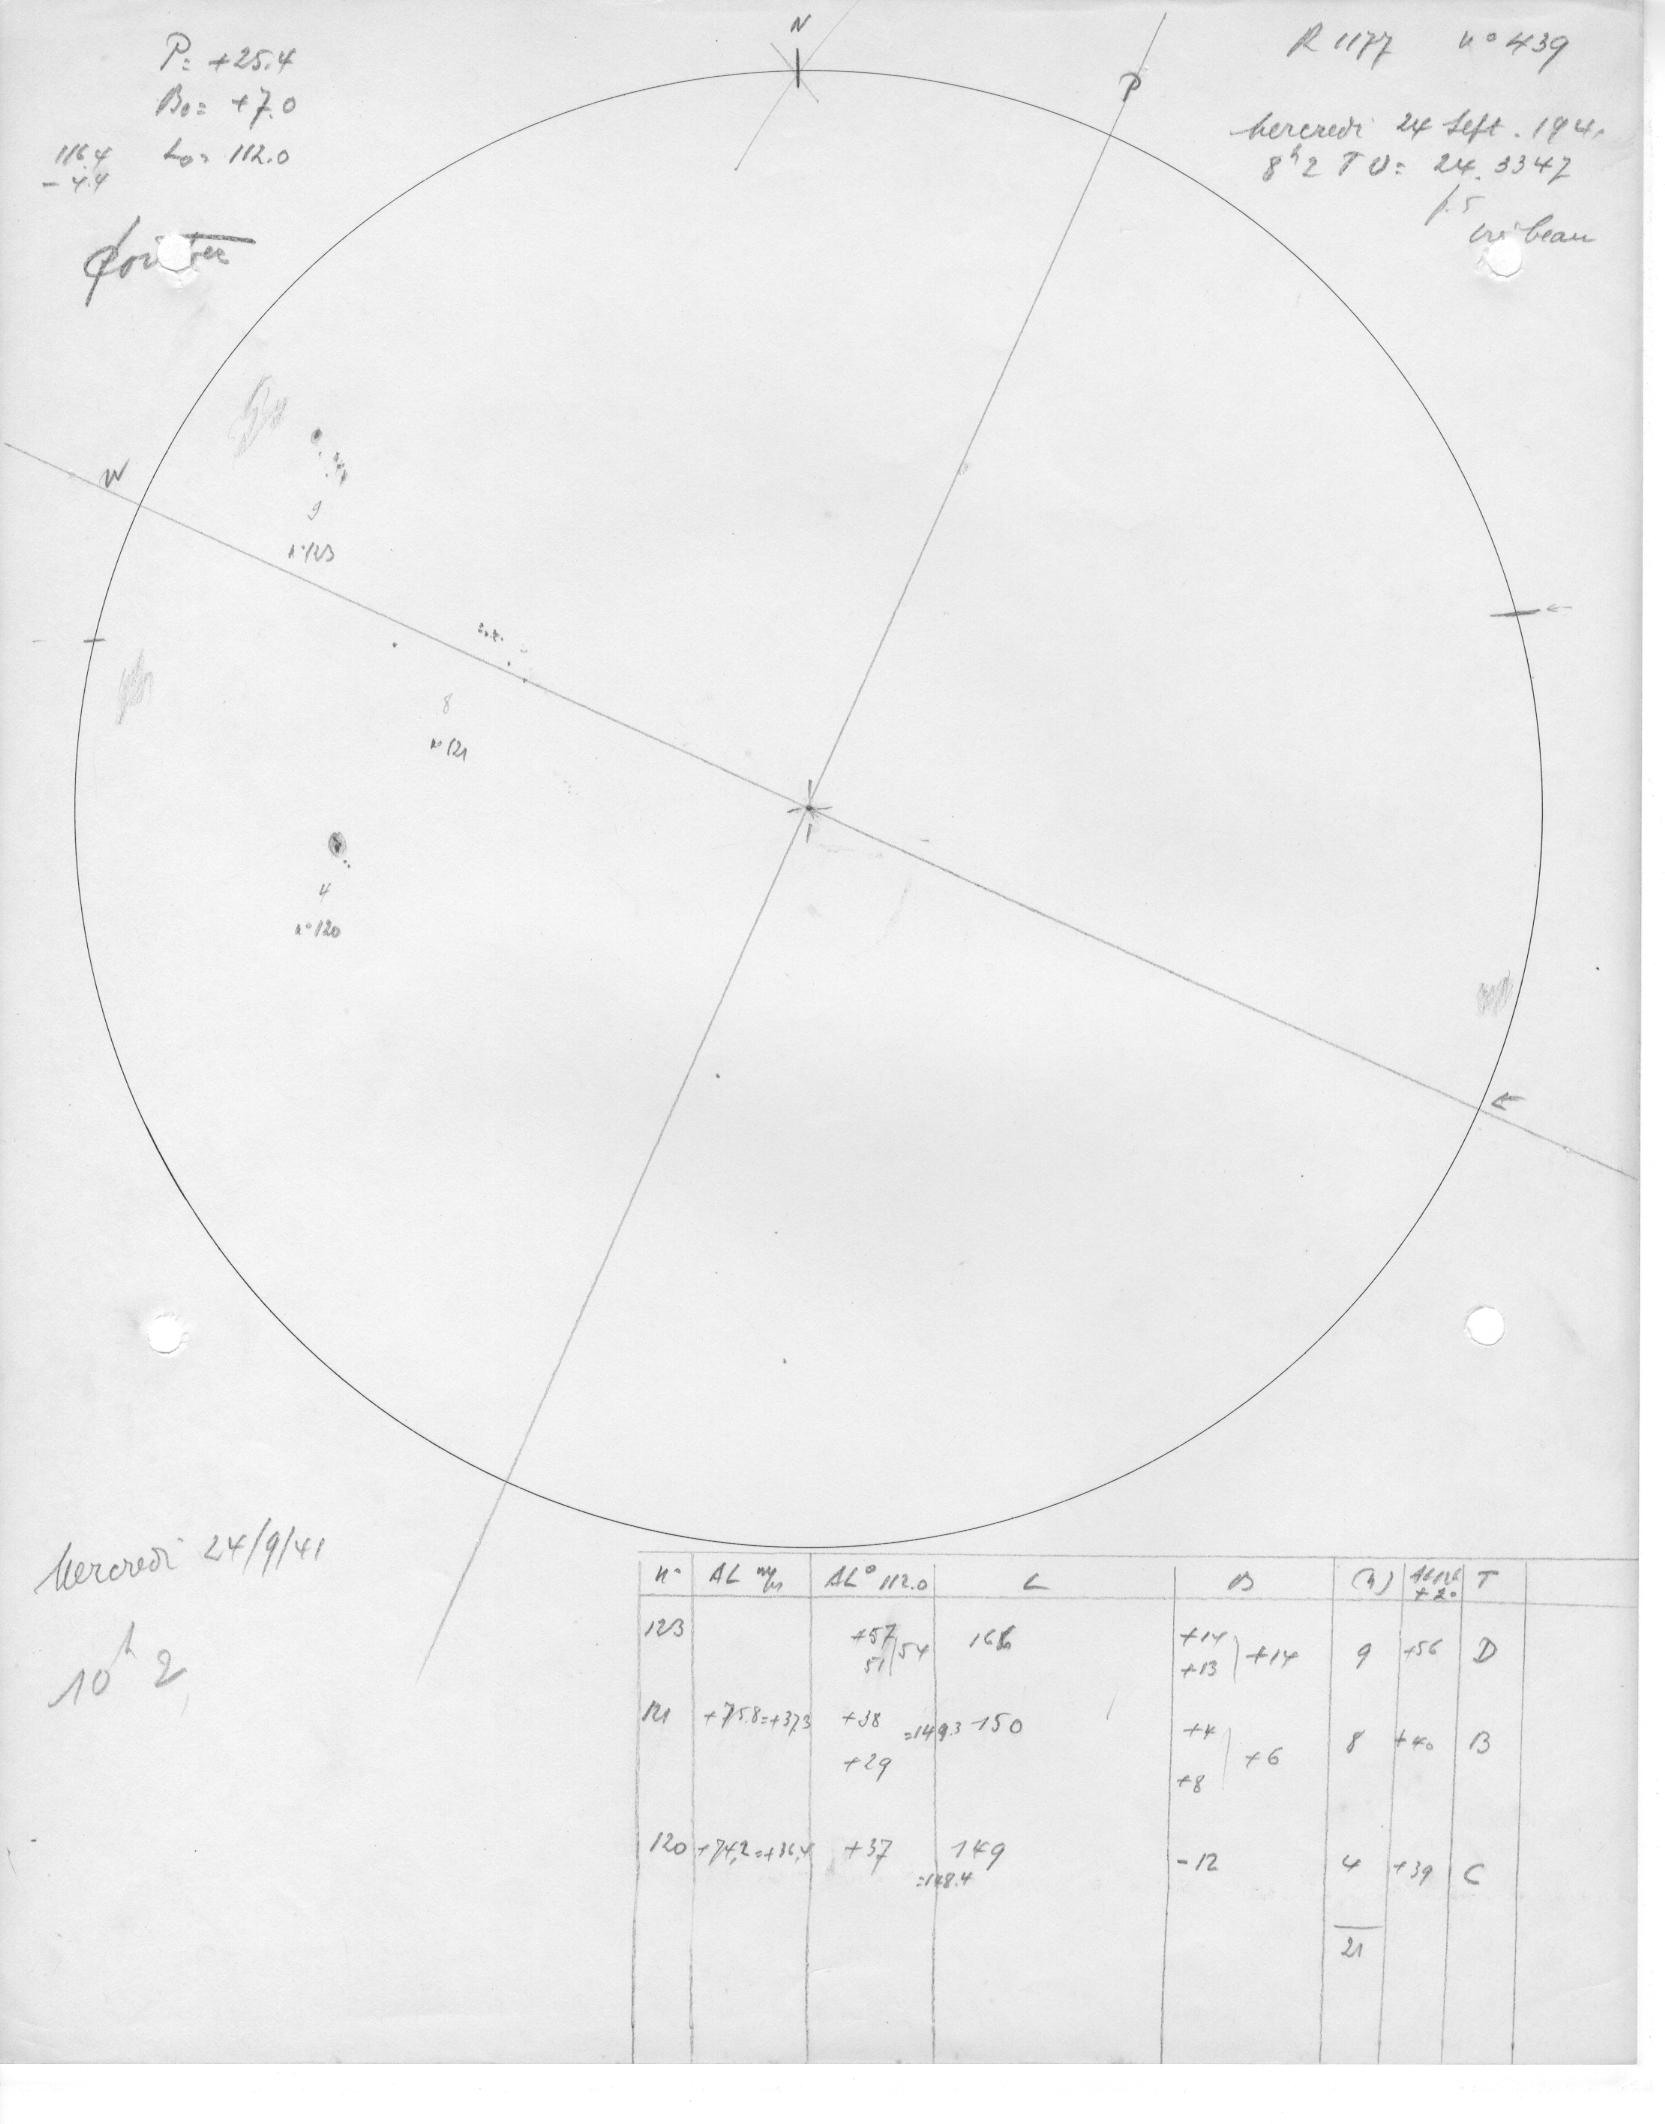 P= +25.4
B0= +7.0
L0= 112.0
116.4
- 4.4
N
P
R 1177 n° 439
Mercredi 24 Sept. 194
8h2 TU= 24.3347
W
9
n°123
8
n°121
4
n°120
E
Mercredi 24/9/41
10h 2
n° AL m/m AL° 112.0 L B (h) T
123 +57 51 54 166 +14 +13 +14 9 +56 D
121 +75.8=+37.3 +38 =149.3 150 +4 +6 8 +40 B
+29 +8
120 +74,2=+36,4 +37 149 -12 4 +39 C
=148.4
21